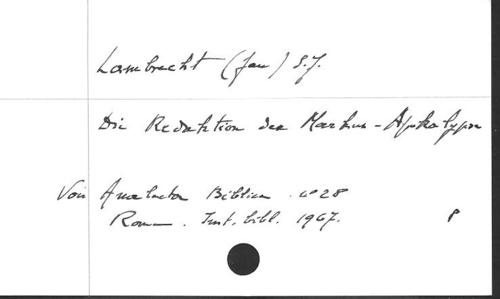 Lambrecht (Jan) S.J.
Die Redaktion der Markus-Apokalypse
Voir Analecta Biblica. n° 28
Roma. Inst. bibl. 1967. P